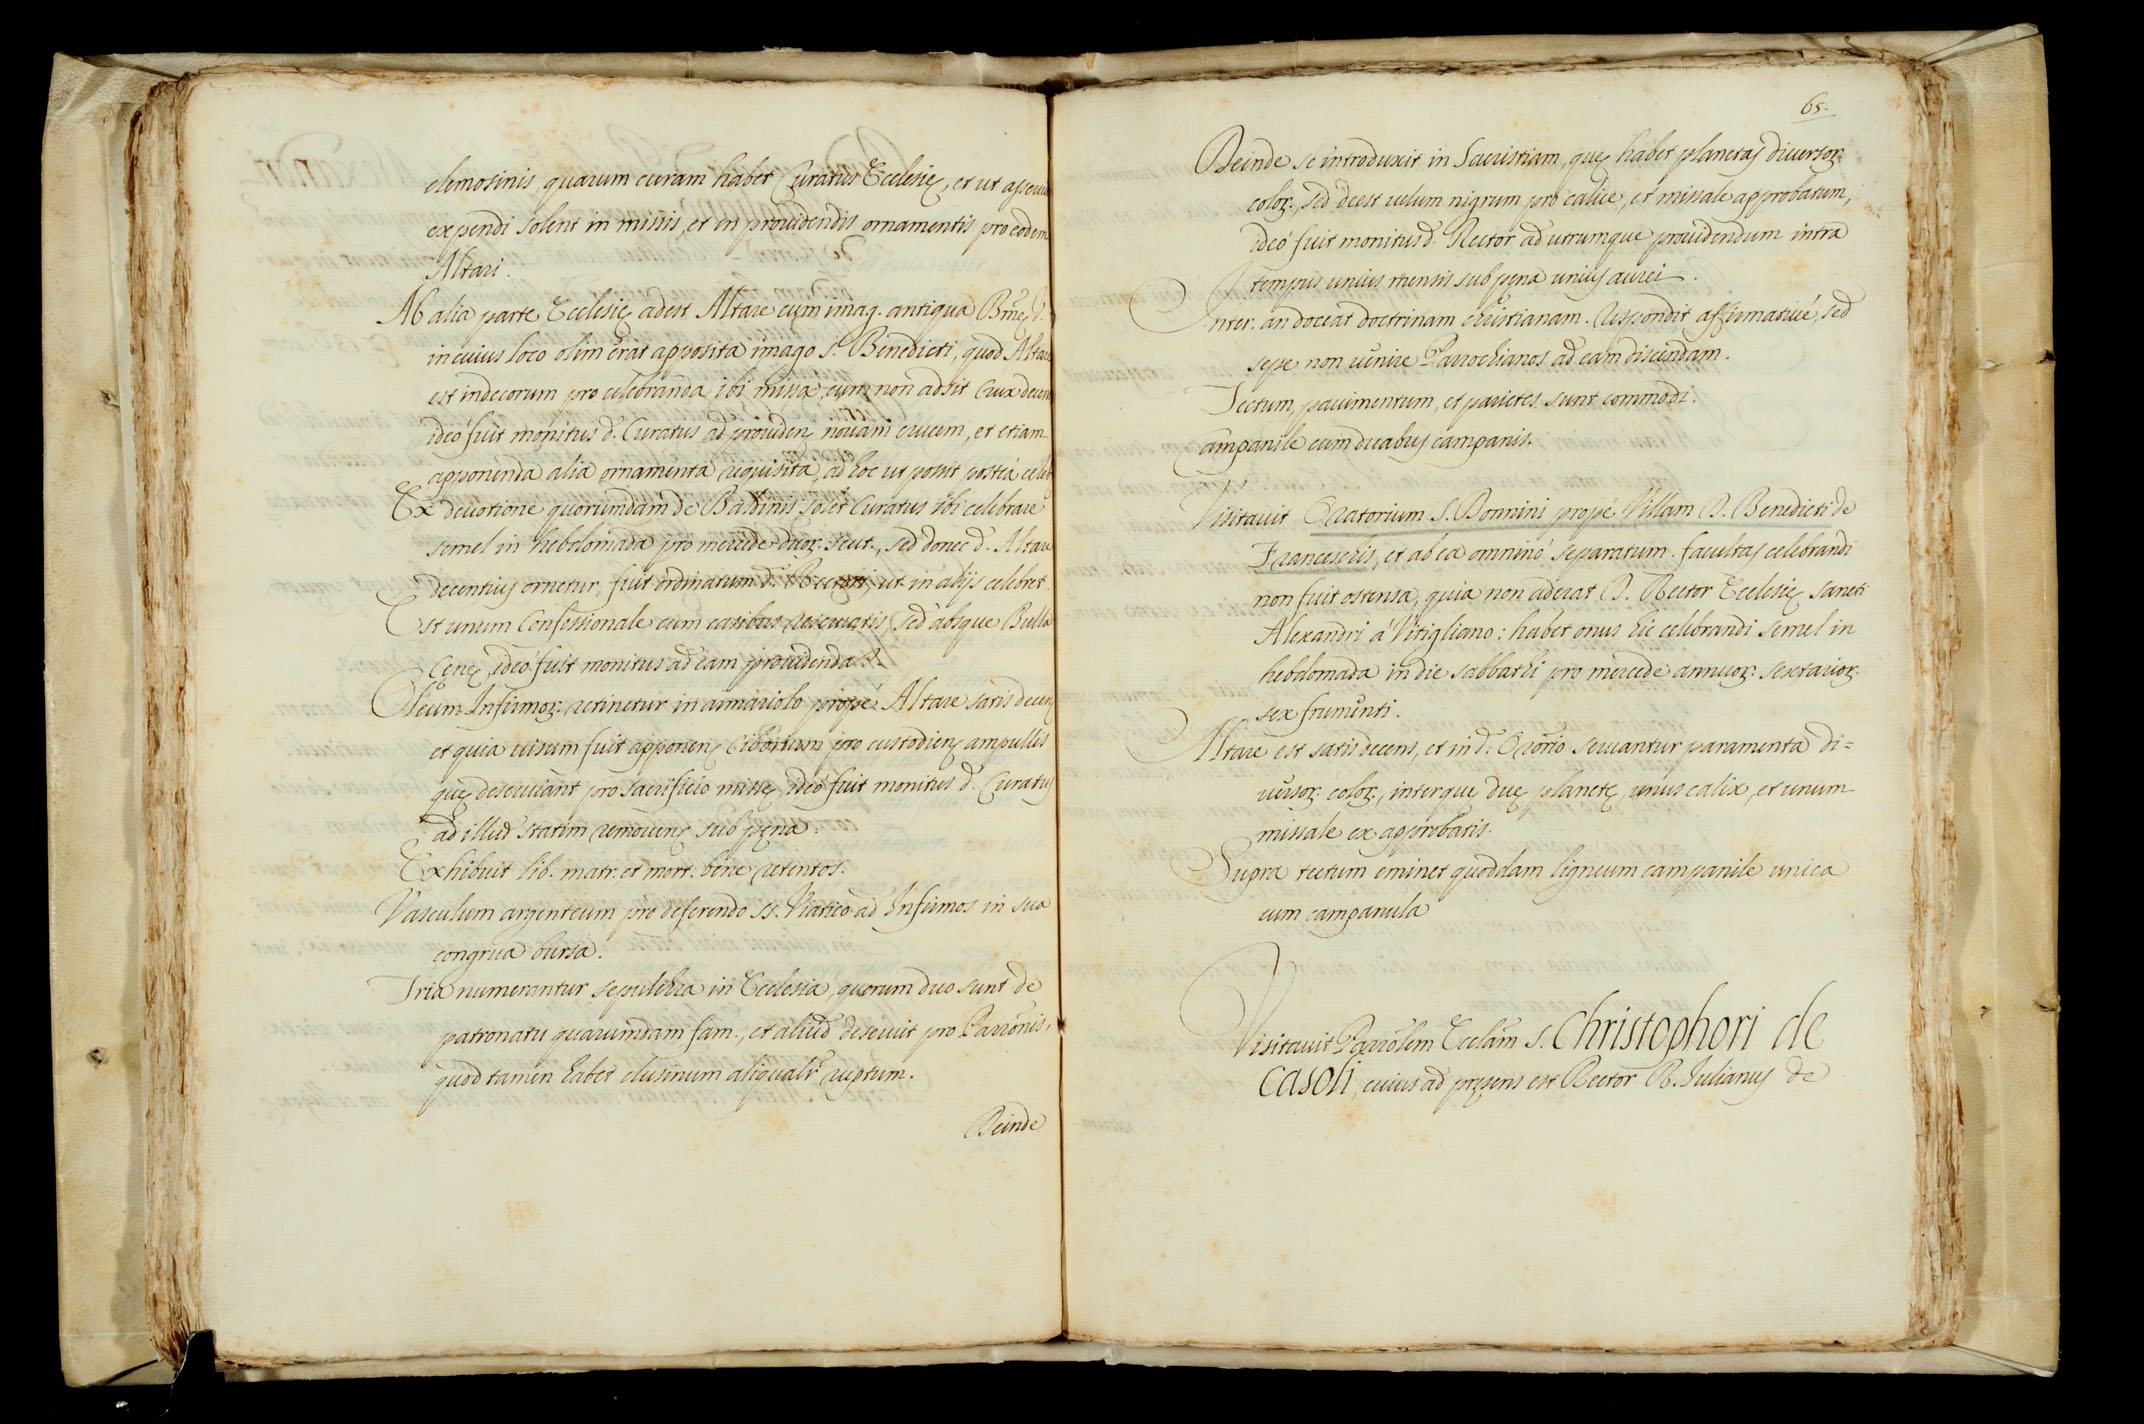 elemosinis, quarum curam habet Curatus Ecclesię, et ut asseruit
expendi solent in missis, et in prouidendis ornamentis pro eodem
Altari.
Ab alia parte Ecclesię adest Altare cum imag. antiqua Bmę V.
in cuius loco olim erat apposita imago S. Benedicti, quod Altare
est indecorum pro celebranda ibi missa, cum non adsit Crux decens
ideò fuit monitus d. Curatus ad prouiden. nouam crucem, et etiam
apponenda alia ornamenta requisita, ad hoc ut possit posteà celebr
Ex deuotione quorumdam de Baldinis solet Curatus ibi celebrare
semel in hebdomada pro mercede duor. scut., sed donec d. Altare
decentius ornetur, fuit ordinatum d. Rectori, ut in alijs celebret.
Est unum Confessionale cum casibus reseruatis, sed absque Bulla
Cęnę, ideò fuit monitus ad eam prouidenda.
Oleum Infirmor. retinetur in armariolo propè Altare satis decens
et quia uisum fuit apponen. Ciborium pro custodien. ampullis
quę deseruiant pro sacrificio missę, ideò fuit monitus d. Curatus
ad illud statim remouen. sub pęna.
Exhibuit lib. matr. et mort. bene retentos.
Vasculum argenteum pro deferendo ss. Viatico ad Infirmos in sua
congrua bursa.
Tria numerantur sepulchra in Ecclesia, quorum duo sunt de
patronatu quarumdam fam., et aliud deseruit pro Parronis,
quod tamen habet clusinum aliqualr ruptum.
Deinde
65.
Deinde se introduxit in Sacristiam, quę habet planetas diuersor.
color., sed deest uelum nigrum pro calice, et missale approbatum,
ideò fuit monitus d. Rector ad utrumque prouidendum intra
tempus unius mensis sub pęna unius aurei.
Inter. an doceat doctrinam christianam. Respondit affirmatiuè, sed
sepe non uenire Parrochianos ad eam discendam.
Tectum, pauimentum, et parietes sunt commodi.
Campanile cum duabus campanis.
Visitauit Oratorium S. Donnini propè Villam D. Benedicti de
Franceschis, et ab ea omninò separatum. facultas celebrandi
non fuit ostensa, quia non aderat D. Rector Ecclesię Sancti
Alexandri à Vitigliano: habet onus hic celebrandi semel in
hebdomada in die sabbathi pro mercede annuor. sextarior.
sex frumenti.
Altare est satis decens, et in d. Orōrio seruantur paramenta di=
uersor. color., inter quę duę planetę, unus calix, et unum
missale ex approbatis.
Supra tectum eminet quoddam ligneum campanile unica
cum campanula
Visitauit Parrolem Ecclam S. Christophori de
Casoli, cuius ad pręsens est Rector R. Iulianus de